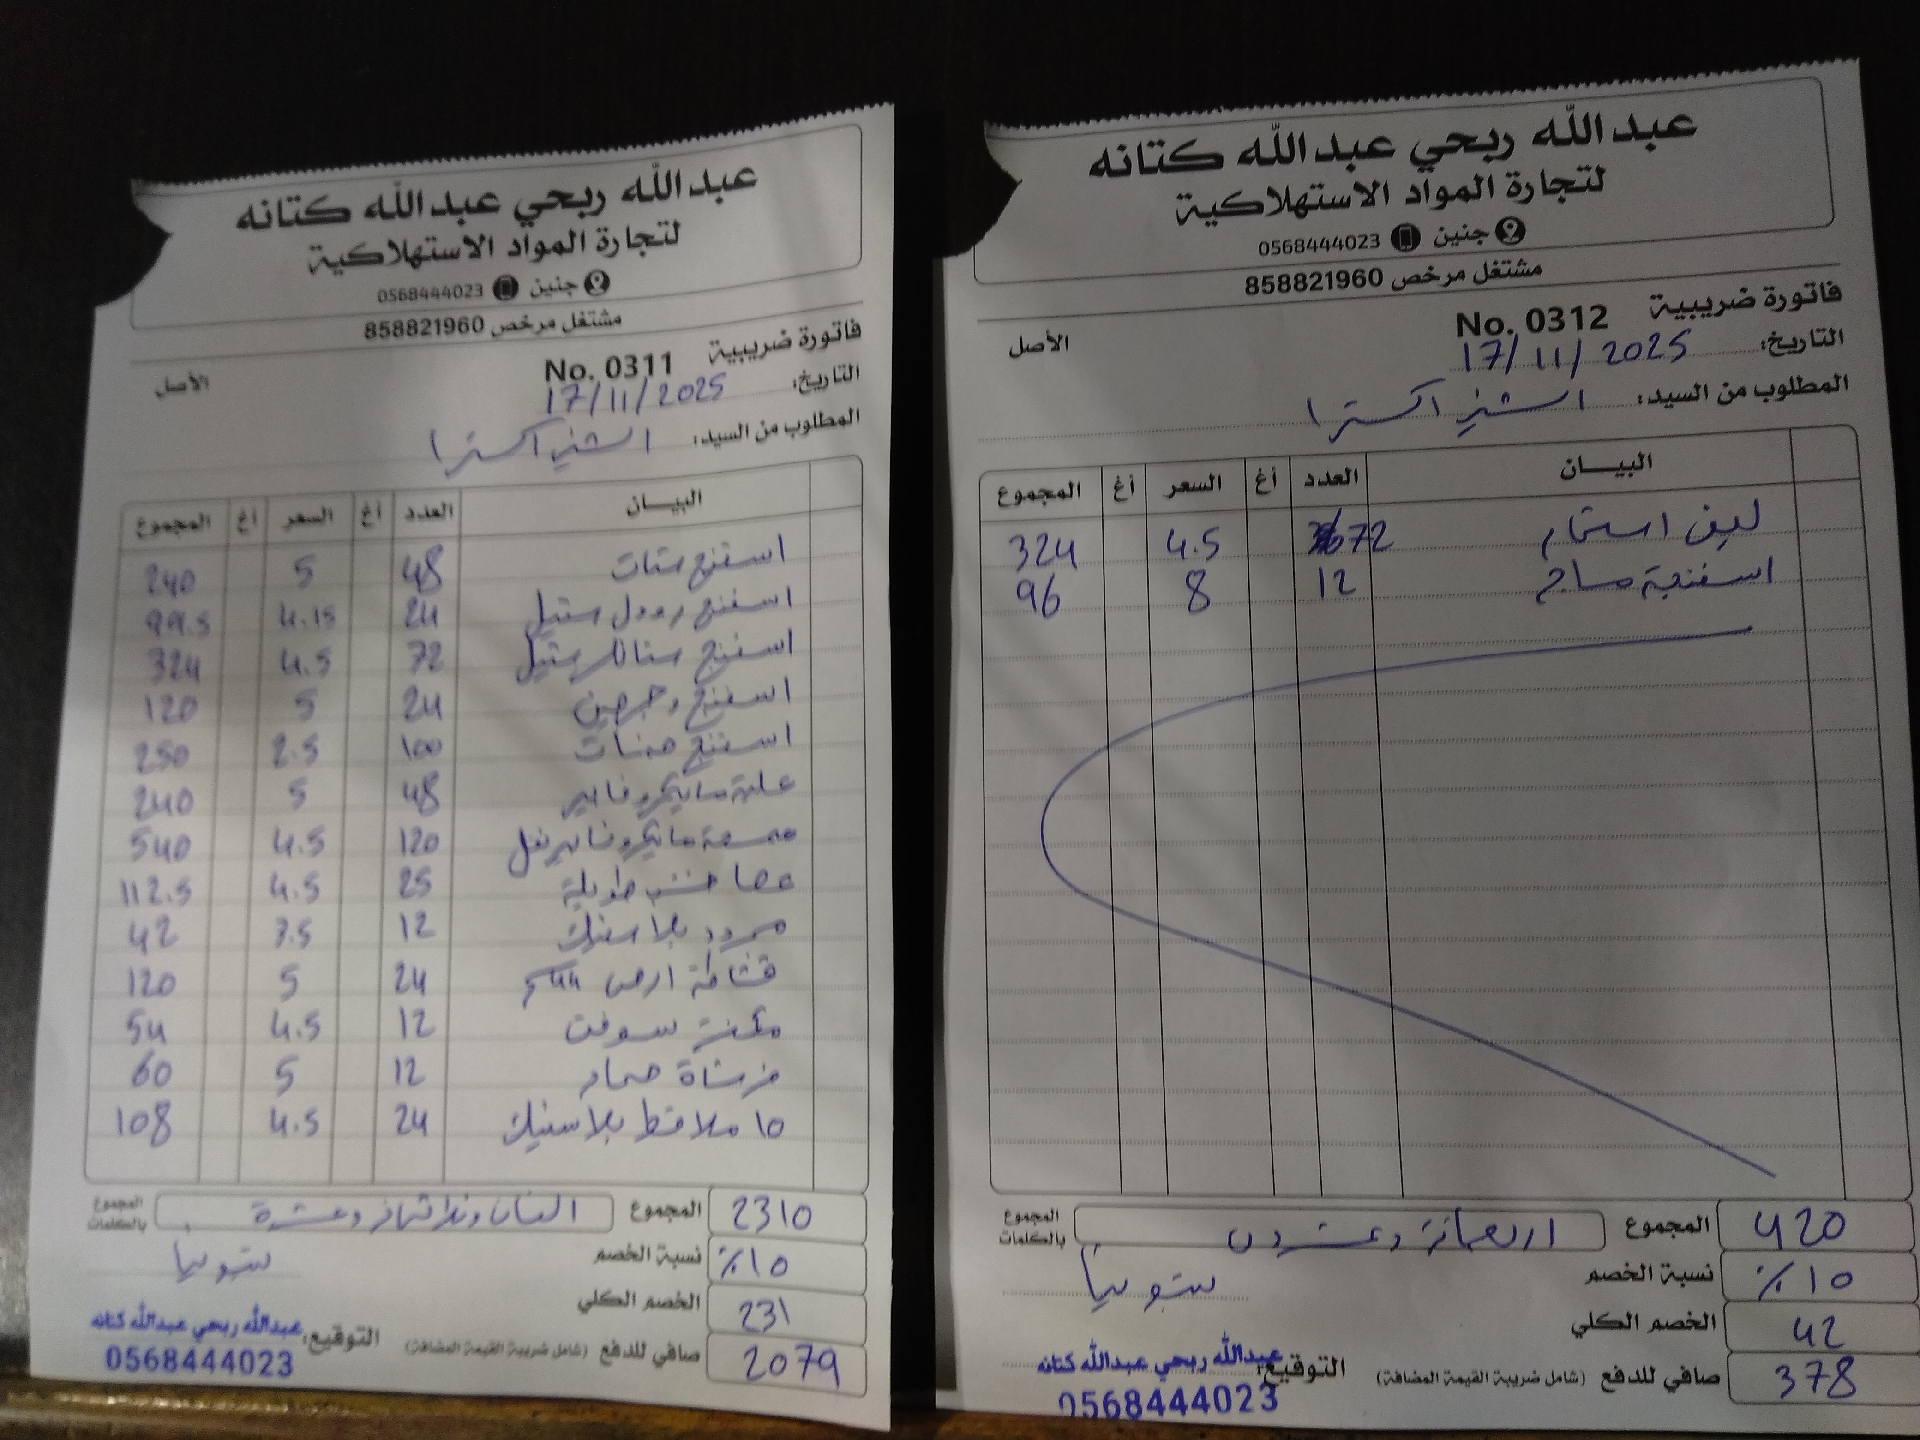 عبدالله ربحي عبدالله كتانه
لتجارة المواد الاستهلاكية
جنين 0568444023
مشتغل مرخص 858821960
فاتورة ضريبية No. 0311
الأصل
التاريخ: 17/11/2025
المطلوب من السيد: الشني اكسترا
البيــان العدد أغ السعر أغ المجموع
اسفنج ستات 48 5 240
اسفنج رول ستيل 24 4.15 99.5
اسفنج ستانلس ستيل 72 4.5 324
اسفنج وجهين 24 5 120
اسفنج 100 2.5 250
علبة مايكروفايبر 48 5 240
ممسحة مايكروفايبر 120 4.5 540
عصا خشب طويلة 25 4.5 112.5
مجرود بلاستيك 12 3.5 42
قشاطة ارض 44سم 24 5 120
مكنسة سوفت 12 4.5 54
فرشاة حمام 12 5 60
10 ملاقط بلاستيك 24 4.5 108
المجموع 2310
المجموع بالكلمات الفان وثلاثمائة وعشرة
نسبة الخصم 10%
الخصم الكلي 231
صافي للدفع (شامل ضريبة القيمة المضافة) 2079
التوقيع: عبدالله ربحي عبدالله كتانه
0568444023
عبدالله ربحي عبدالله كتانه
لتجارة المواد الاستهلاكية
جنين 0568444023
مشتغل مرخص 858821960
فاتورة ضريبية No. 0312
الأصل
التاريخ: 17/11/2025
المطلوب من السيد: الشني اكسترا
البيــان العدد أغ السعر أغ المجموع
ليف استحمام 72 4.5 324
اسفنجة مساج 12 8 96
المجموع 420
المجموع بالكلمات اربعمائة وعشرون
نسبة الخصم 10%
الخصم الكلي 42
صافي للدفع (شامل ضريبة القيمة المضافة) 378
التوقيع: عبدالله ربحي عبدالله كتانه
0568444023